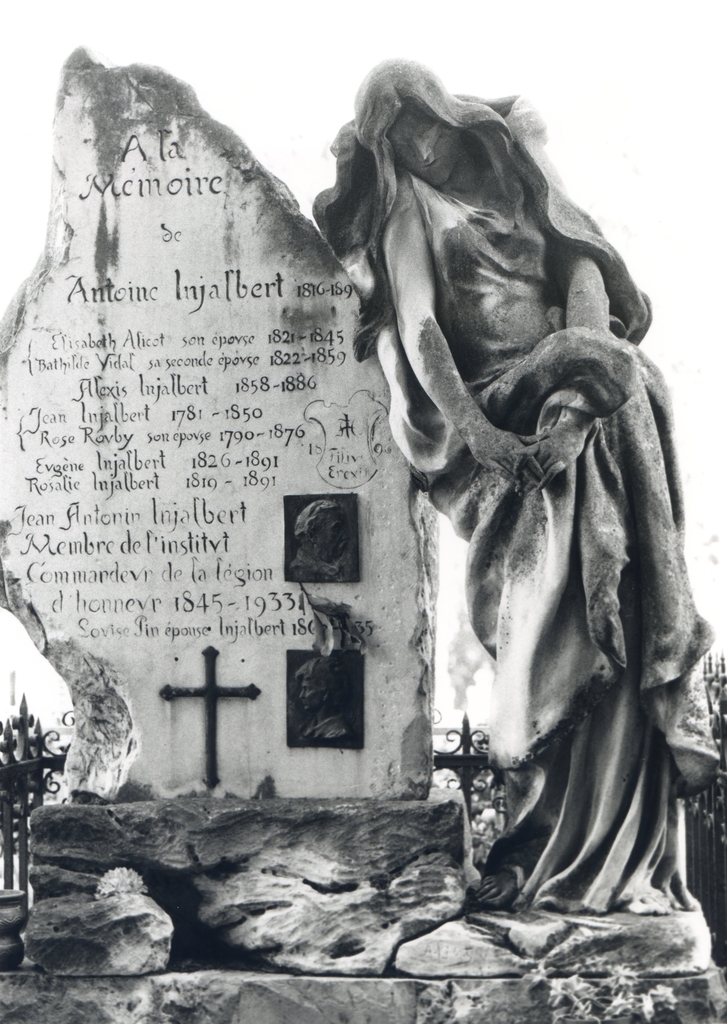 A la
Mémoire
de
Antoine Injalbert 1816-189
Elisabeth Alicot son épovse 1821-1845
Bathilde Vidal sa seconde épovse 1822-1859
Alexis Injalbert 1858-1886
Jean Injalbert 1781-1850
Rose Rovby son epovse 1790-1876
Evgène Injalbert 1826-1891
Rosalie Injalbert 1819-1891
18 96
Filiv
Erexit
Jean Antonin Injalbert
Membre de l'institvt
Commandevr de la légion
d'honnevr 1845-1933
Lovise Pin épouse Injalbert 18 35